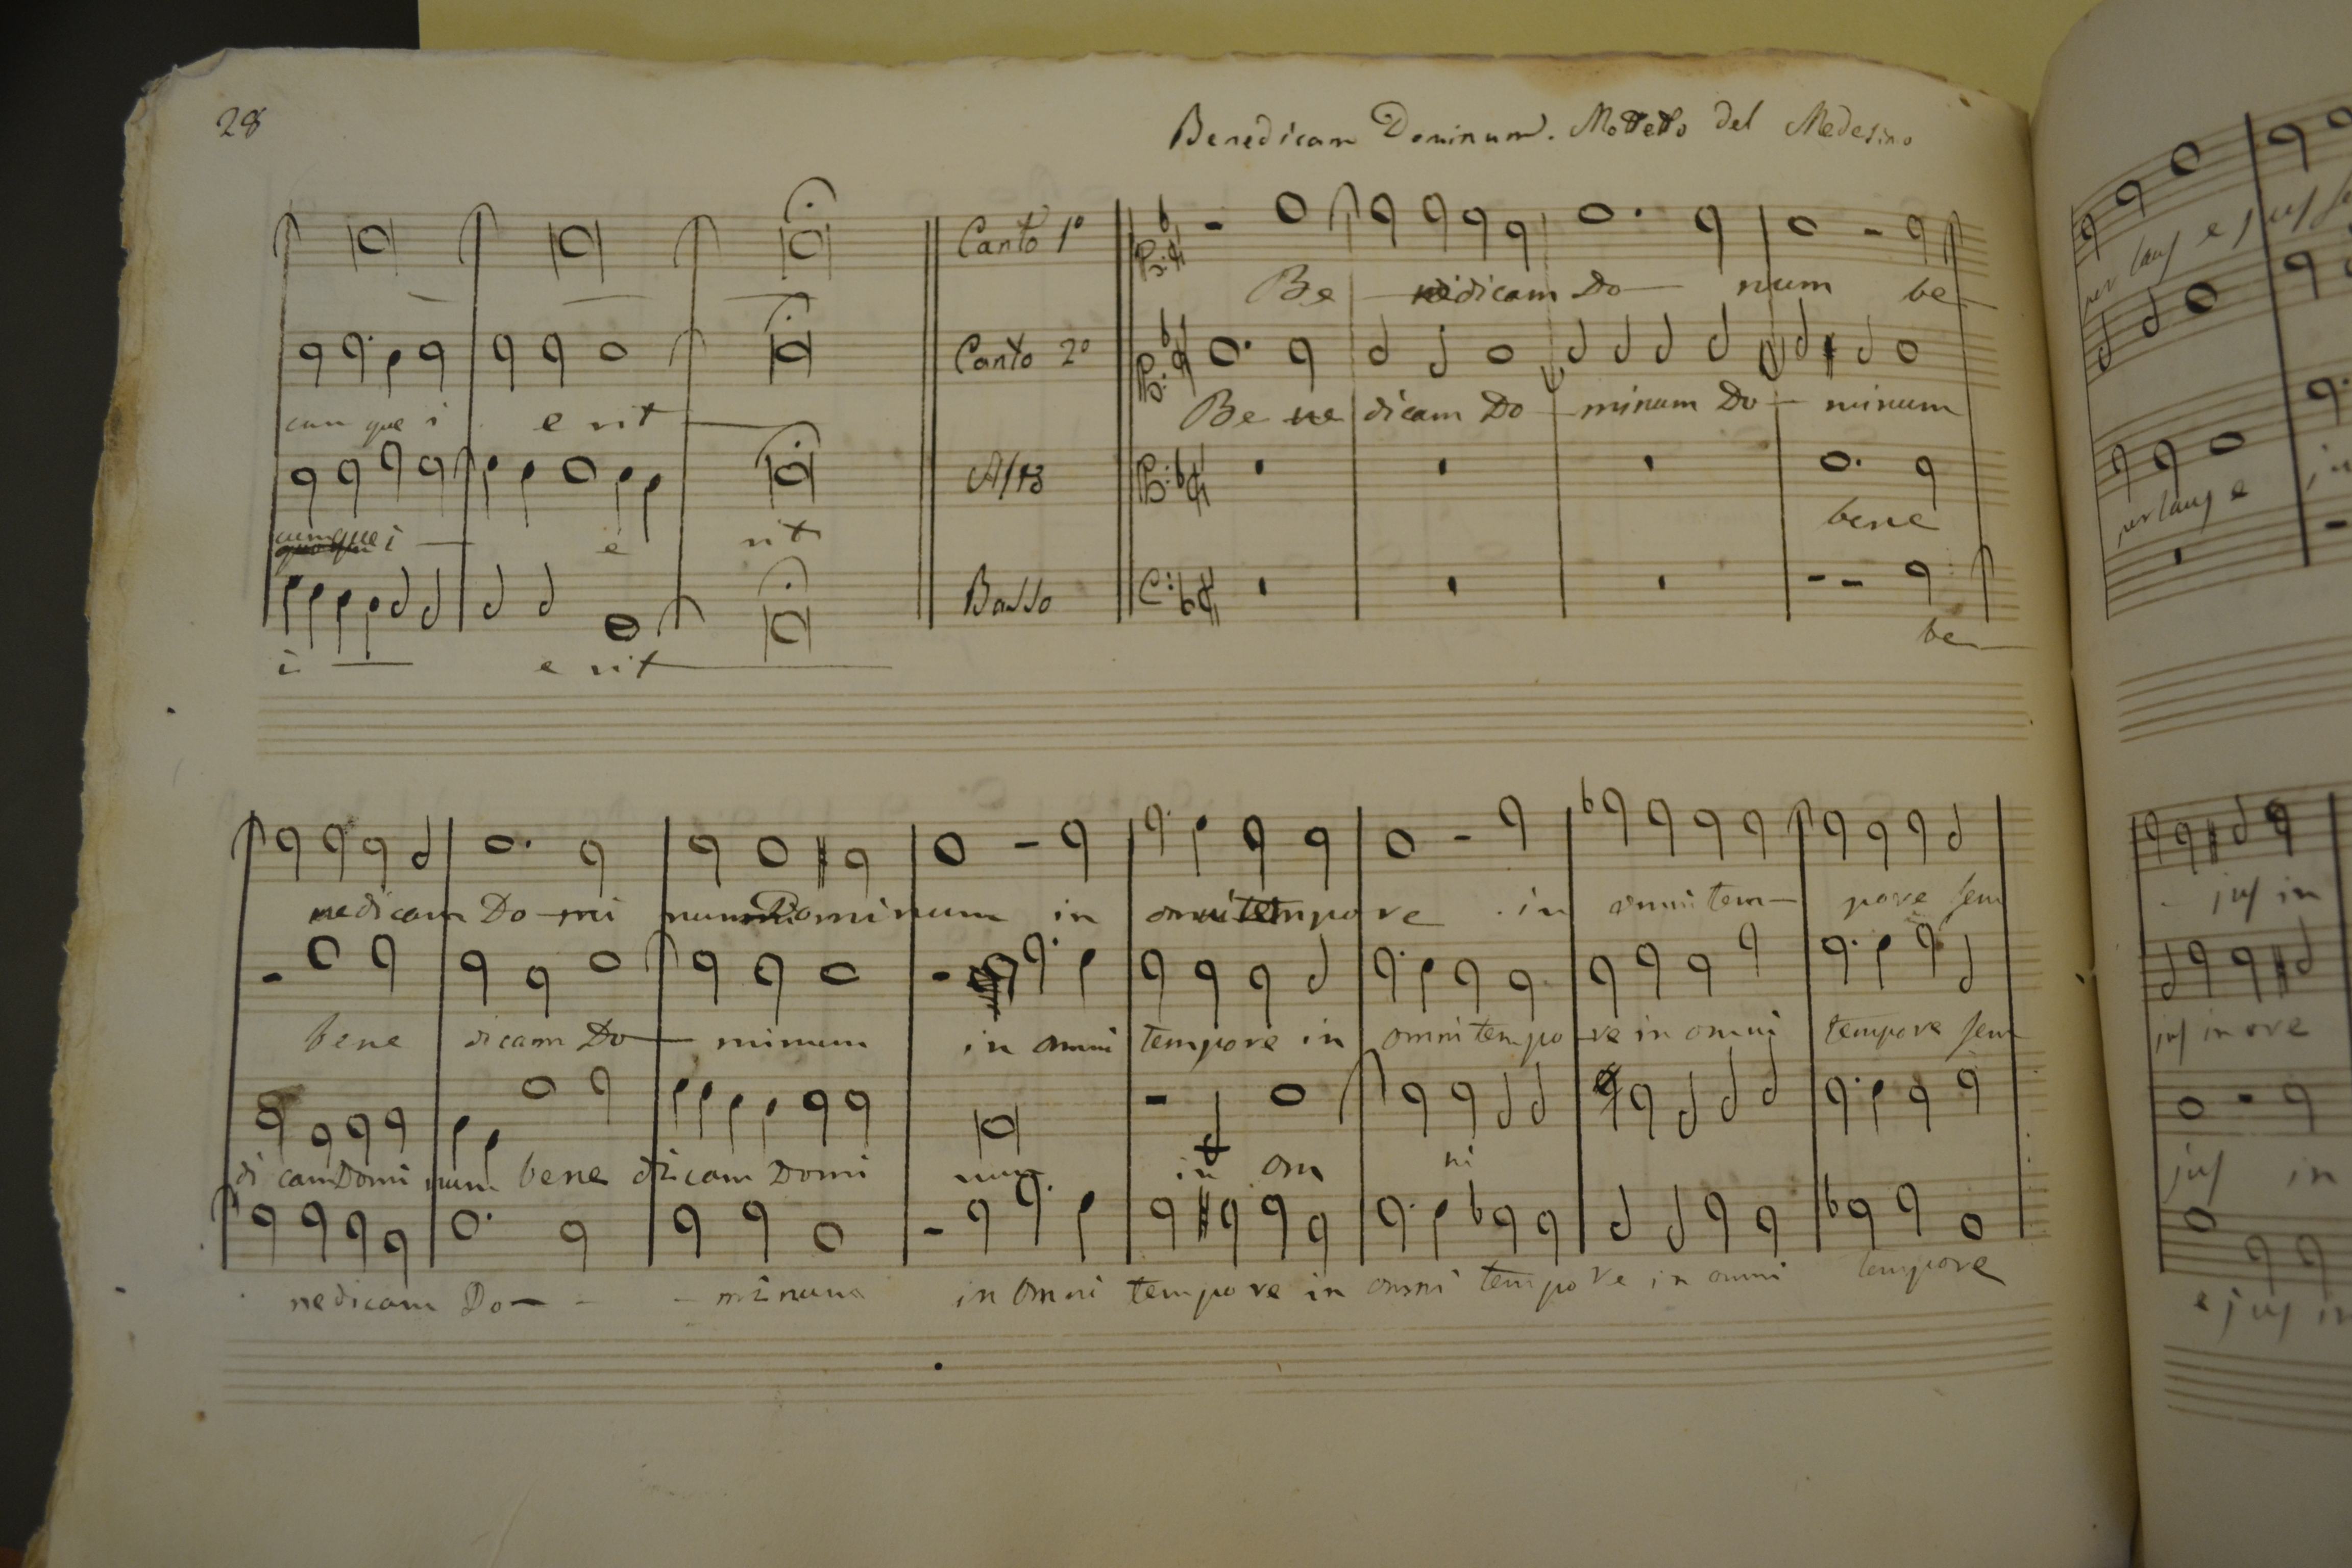 28
Benedicam Dominum. Mottetto del Medesimo
Canto 1º
Be nedicam Do num be
cun que i e rit
Canto 2º
Be ne dicam Do minum Do minum
cumque i e rit
Alto
bene
i e rit
Basso
be
nedicam Do-mi num Dominum in omnitempore in omnitem- pore sem
bene dicam Do minum in omni tempore in omnitempo re in omni tempore sem
di cam Domi num bene dicam Domi num in om ni
nedicam Do- - - minum in omni tempore in omni tempore in omni tempore
per lauſ e juſ
per lauſ e
juſ in
juſ in ore
juſ in
e juſ in